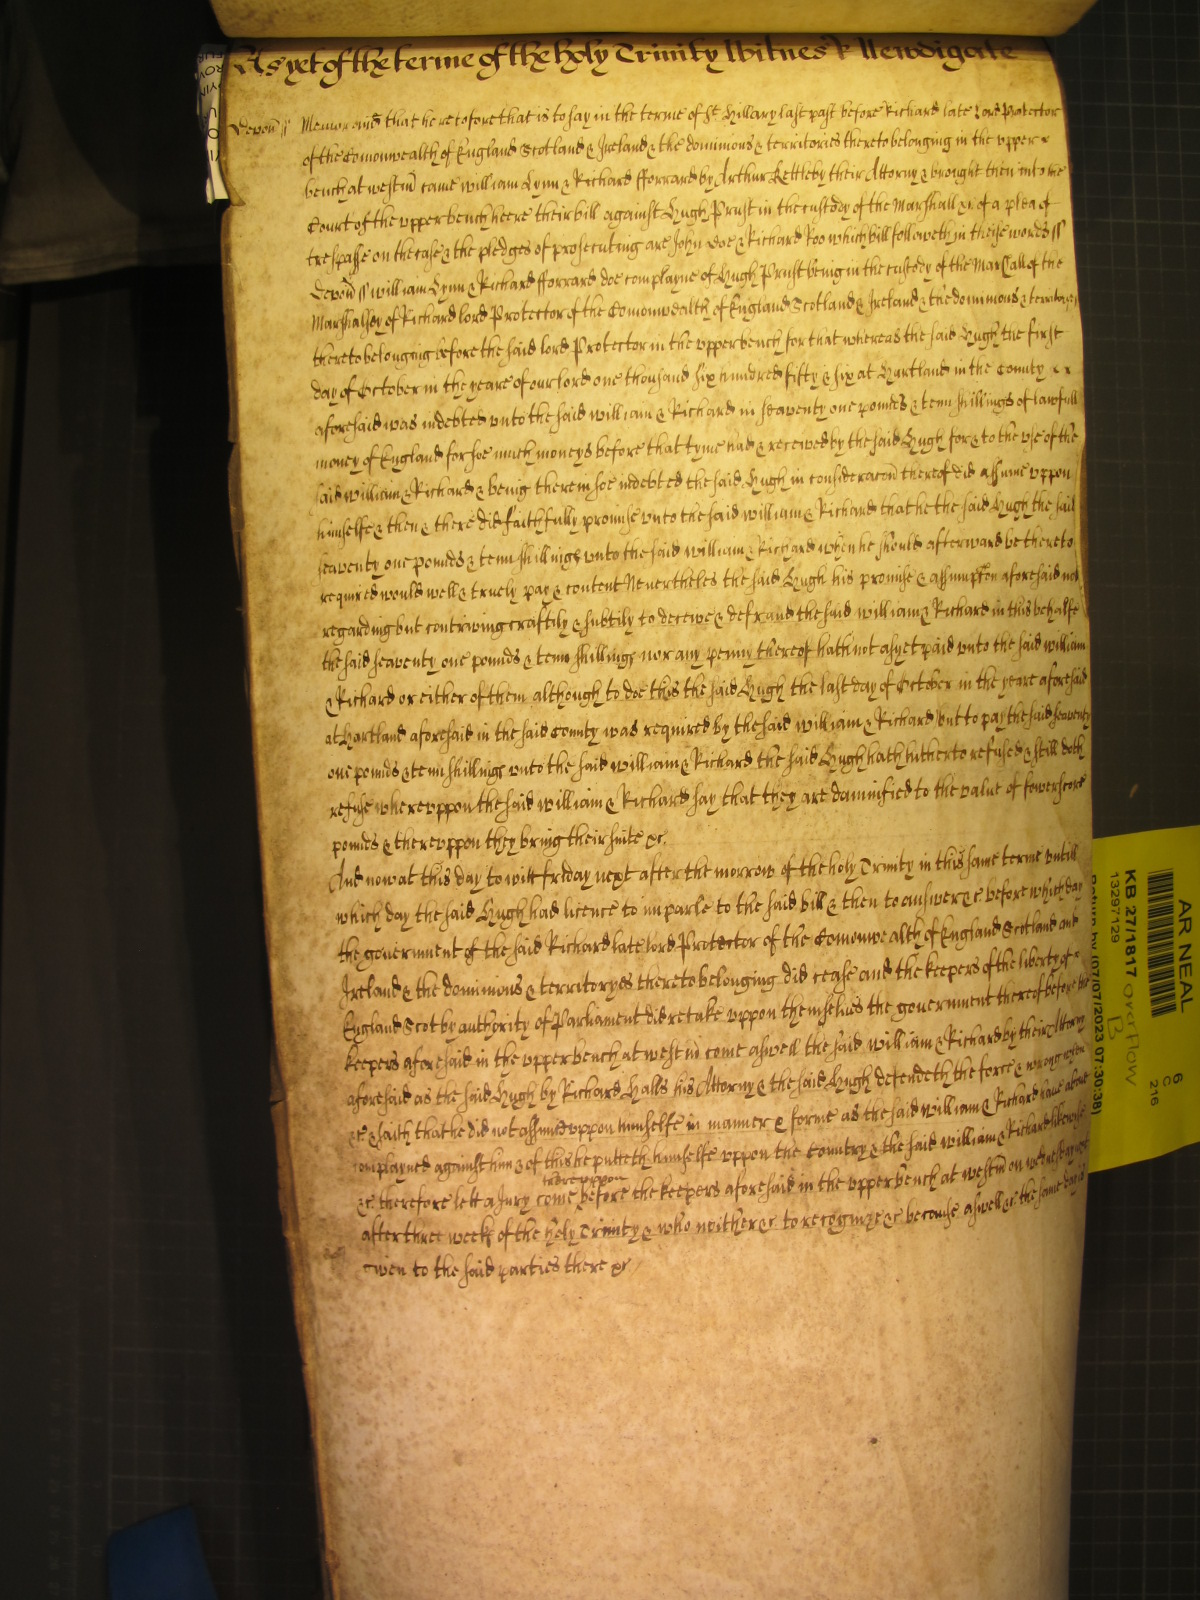 As yet of the terme of the holy Trinity Witnes R Newdigate
Devon ss Memorand that heretofore that is to say in the terme of St Hillary last past before Richard late Lord Protector
of the Comonwealth of England Scotland & Ireland & the dominions & territories thereto belonging in the upper
bench at westm came william Lynn & Richard fforrard by Arthur Kettleby their Attorny & brought then into the
Court of the upper bench heere their bill against Hugh Prust in the custody of the Marshall &c of a plea of
trespasse on the case & the pledges of prosecuting are John Doe & Richard Roo which bill followeth in theise words ss
Devon ss william Lynn & Richard fforrard doe complayne of Hugh Prust being in the custody of the Marshall of the
Marshalsey of Richard lord Protector of the Comonwealth of England Scotland & Ireland & the dominions & territories
thereto belonging before the said lord Protector in the upper bench for that whereas the said Hugh the first
day of October in the yeare of our lord one thousand six hundred fifty & six at Hartland in the County
aforesaid was indebted unto the said william & Richard in seaventy one pounds & tenn shillings of lawfull
money of England for soe much moneys before that tyme had & received by the said Hugh for & to the use of the
said william & Richard & being therein soe indebted the said Hugh in consideracon thereof did assume uppon
himselfe & then & there did faithfully promise unto the said william & Richard that he the said Hugh the said
seaventy one pounds & tenn shillings unto the said william & Richard when he should afterward be thereto
required would well & truely pay & content Nevertheles the said Hugh his promise & assumption aforesaid not
regarding but contriving craftily & subtily to deceive & defraud the said william & Richard in this behalfe
the said seaventy one pounds & tenn shillings nor any penny thereof hath not as yet paid unto the said william
& Richard or either of them although to doe this the said Hugh the last day of October in the yeare aforesaid
at Hartland aforesaid in the said County was required by the said william & Richard but to pay the said seaventy
one pounds & tenn shillings unto the said william & Richard the said Hugh hath hitherto refused & still doth
refuse whereuppon the said william & Richard say that they are damnified to the value of fowerscore
pounds & thereuppon they bring their suite &c.
And now at this day to witt friday next after the morrow of the holy Trinity in this same terme untill
which day the said Hugh had licence to imparle to the said bill & then to answer &c before which day
the government of the said Richard late lord Protector of the Comonwealth of England Scotland and
Ireland & the dominions & territoryes thereto belonging did cease and the keepers of the liberty of
England &c by authority of Parliament did retake uppon themselves the government thereof before the
keepers aforesaid in the upper bench at westm come aswell the said william & Richard by their Attorny
aforesaid as the said Hugh by Richard Halls his Attorny & the said Hugh defendeth the force & wrong when
&c & saith that he did not assume uppon himselfe in manner & forme as the said william & Richard have above
complayned against him & of this he putteth himselfe uppon the country & the said william & Richard likewise
&c therefore lett a Jury thereuppon come before the keepers aforesaid in the upper bench at westm on wednesday next
after three weeks of the holy Trinity & who neither &c to recognize &c because aswell &c the same day is
given to the said parties there &c
AR NEAL
KB 27/1817 overflow
B
13297129
6
C
216
Return by (07/07/2023 07:30:38)